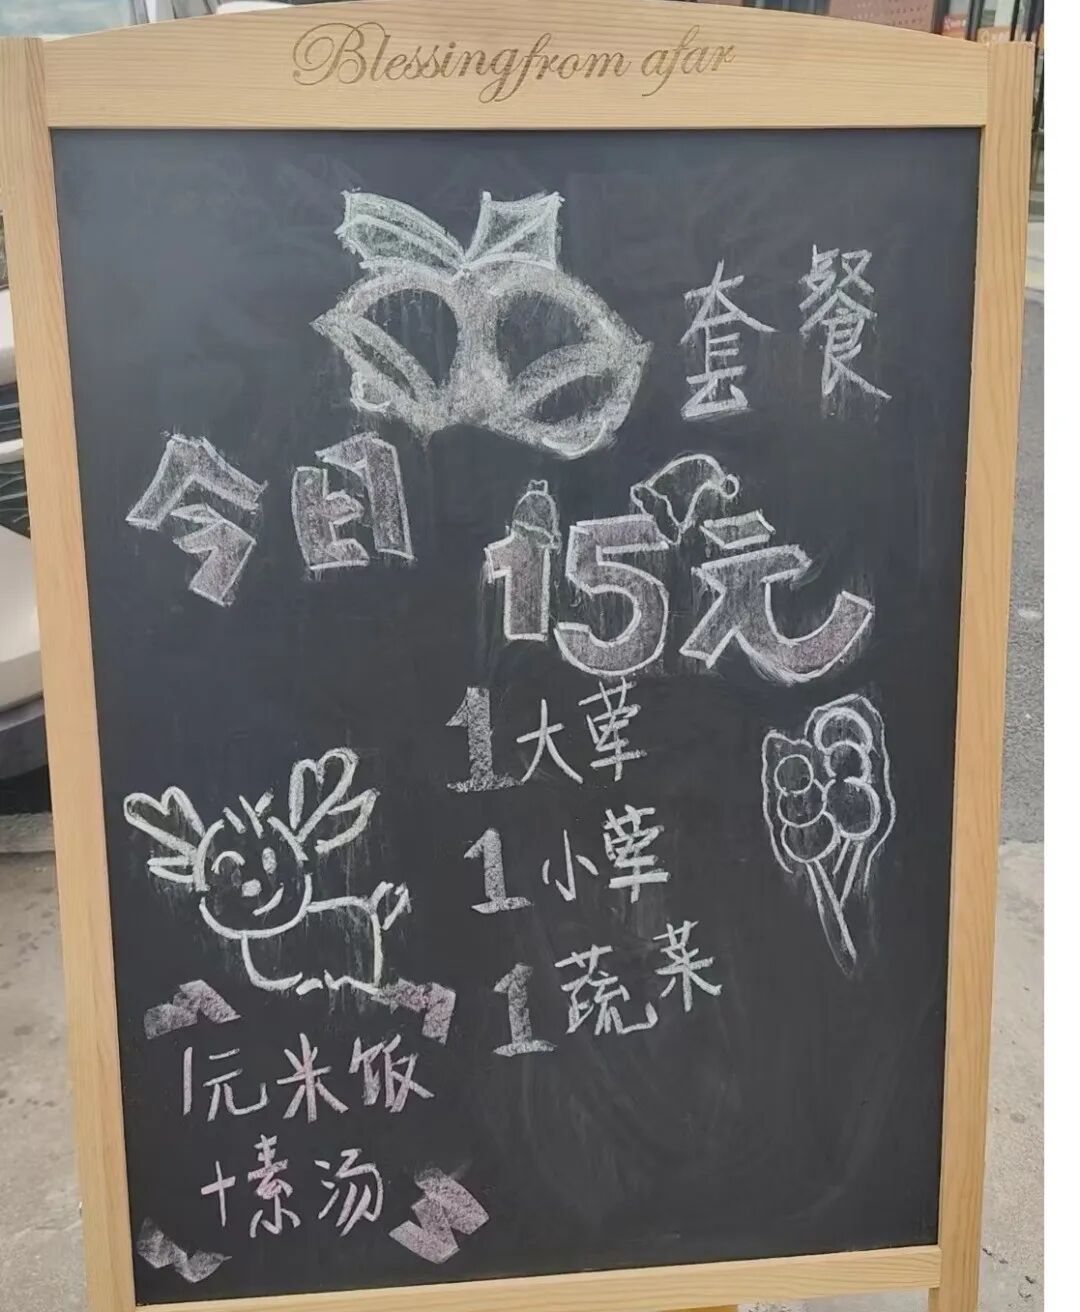 Blessing from afar
套餐
今日
15元
1大荤
1小荤
1蔬菜
1元米饭
+素汤